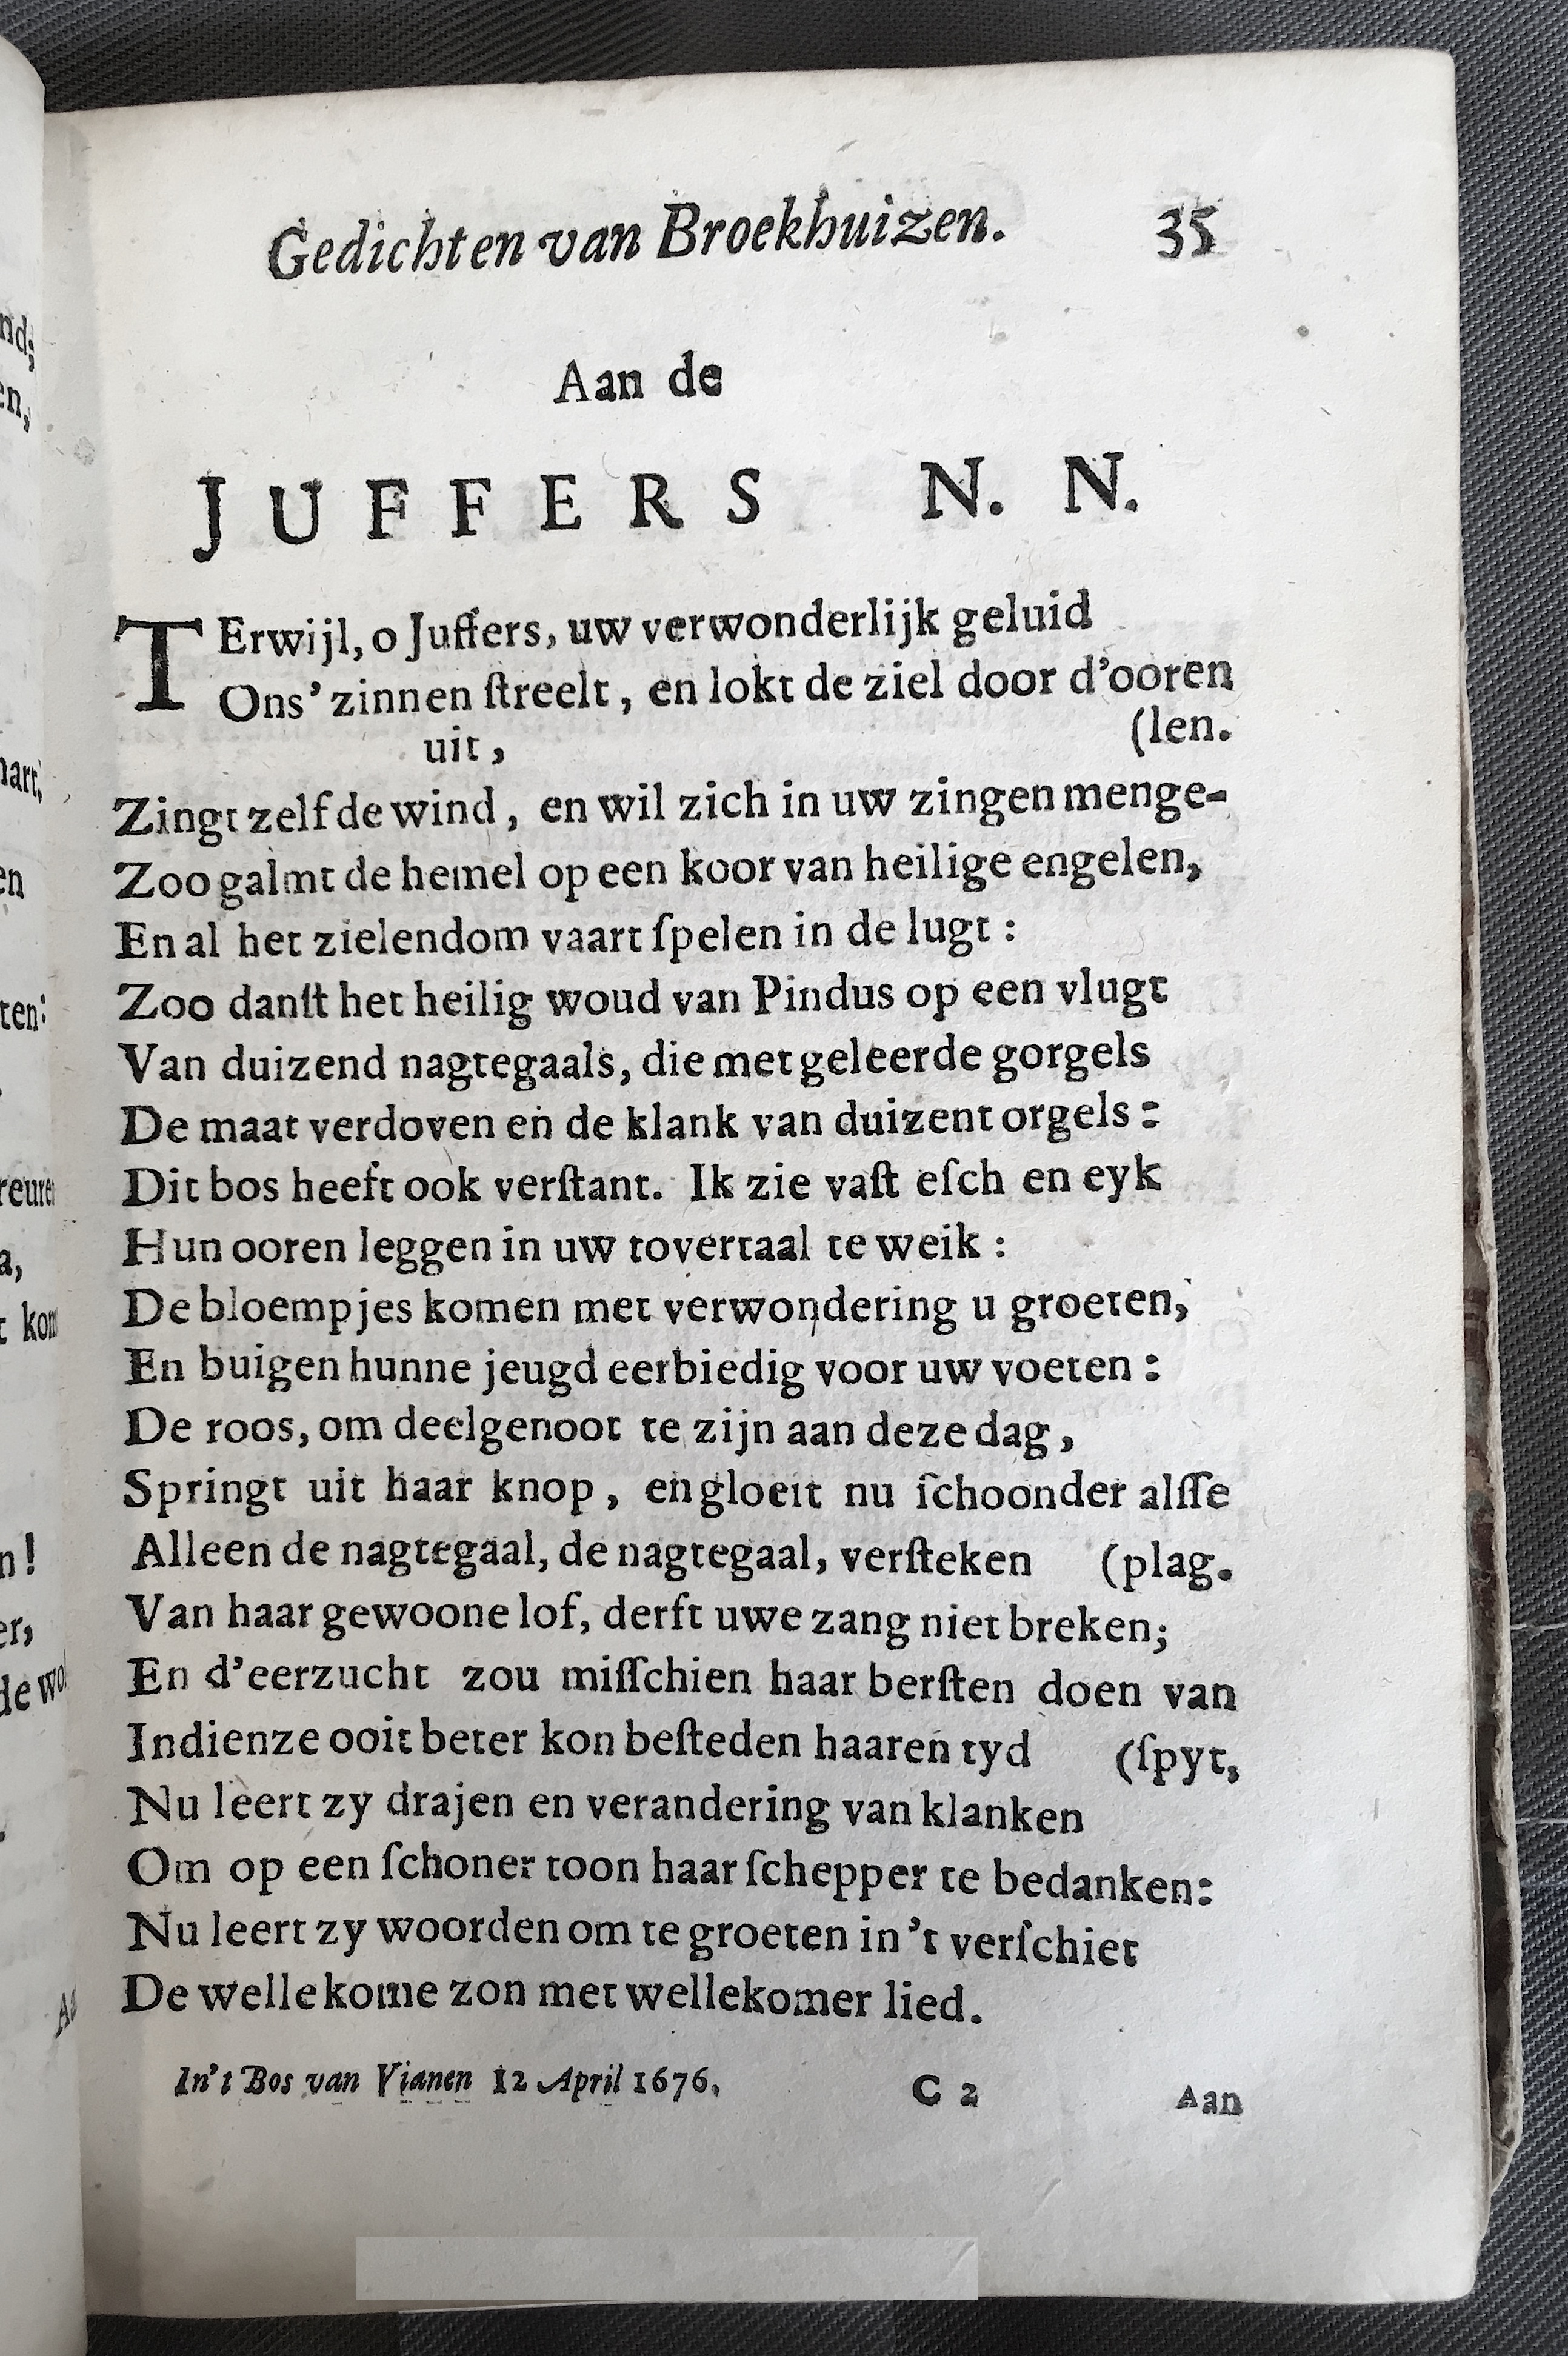 Gedichten van Broekhuizen. 35
Aan de
JUFFERS N. N.
TErwijl, o Juffers, uw verwonderlijk geluid
Ons' zinnen ſtreelt, en lokt de ziel door d'ooren
uit, (len.
Zingt zelf de wind, en wil zich in uw zingen menge-
Zoo galmt de hemel op een koor van heilige engelen,
En al het zielendom vaart ſpelen in de lugt:
Zoo danſt het heilig woud van Pindus op een vlugt
Van duizend nagtegaals, die met geleerde gorgels
De maat verdoven en de klank van duizent orgels:
Dit bos heeft ook verſtant. Ik zie vaſt eſch en eyk
Hun ooren leggen in uw tovertaal te weik:
De bloempjes komen met verwondering u groeten,
En buigen hunne jeugd eerbiedig voor uw voeten:
De roos, om deelgenoot te zijn aan deze dag,
Springt uit haar knop, en gloeit nu ſchoonder alſſe
Alleen de nagtegaal, de nagtegaal, verſteken (plag.
Van haar gewoone lof, derft uwe zang niet breken;
En d'eerzucht zou miſſchien haar berſten doen van
Indienze ooit beter kon beſteden haaren tyd (ſpyt,
Nu leert zy drajen en verandering van klanken
Om op een ſchoner toon haar ſchepper te bedanken:
Nu leert zy woorden om te groeten in 't verſchiet
De wellekome zon met wellekomer lied.
In't Bos van Vianen 12 April 1676.
C 2 Aan